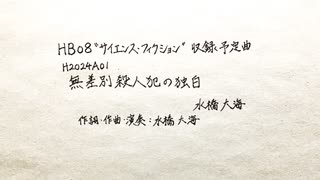 HB08“サイエンス・フィクション”収録予定曲
H2024A01
無差別殺人犯の独白
水橋大海
作詞・作曲・演奏：水橋大海